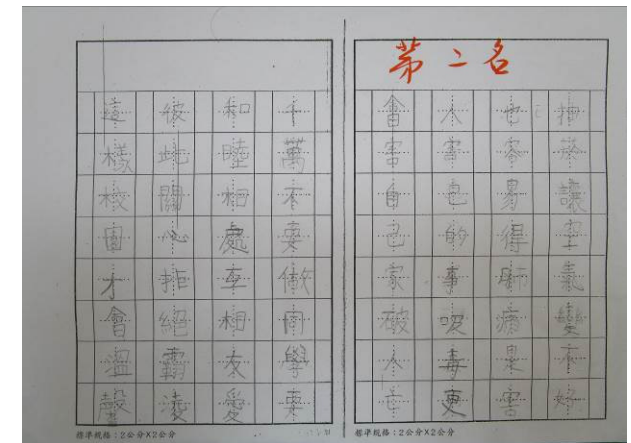 第二名
抽菸讓空氣變不好
也容易得肺癌是害
人害己的事吸毒更
會害自己家破人亡
千萬不要做同學要
和睦相處互相友愛
彼此關心拒絕霸凌
這樣校園才會溫馨
標準規格：2公分X2公分
標準規格：2公分X2公分